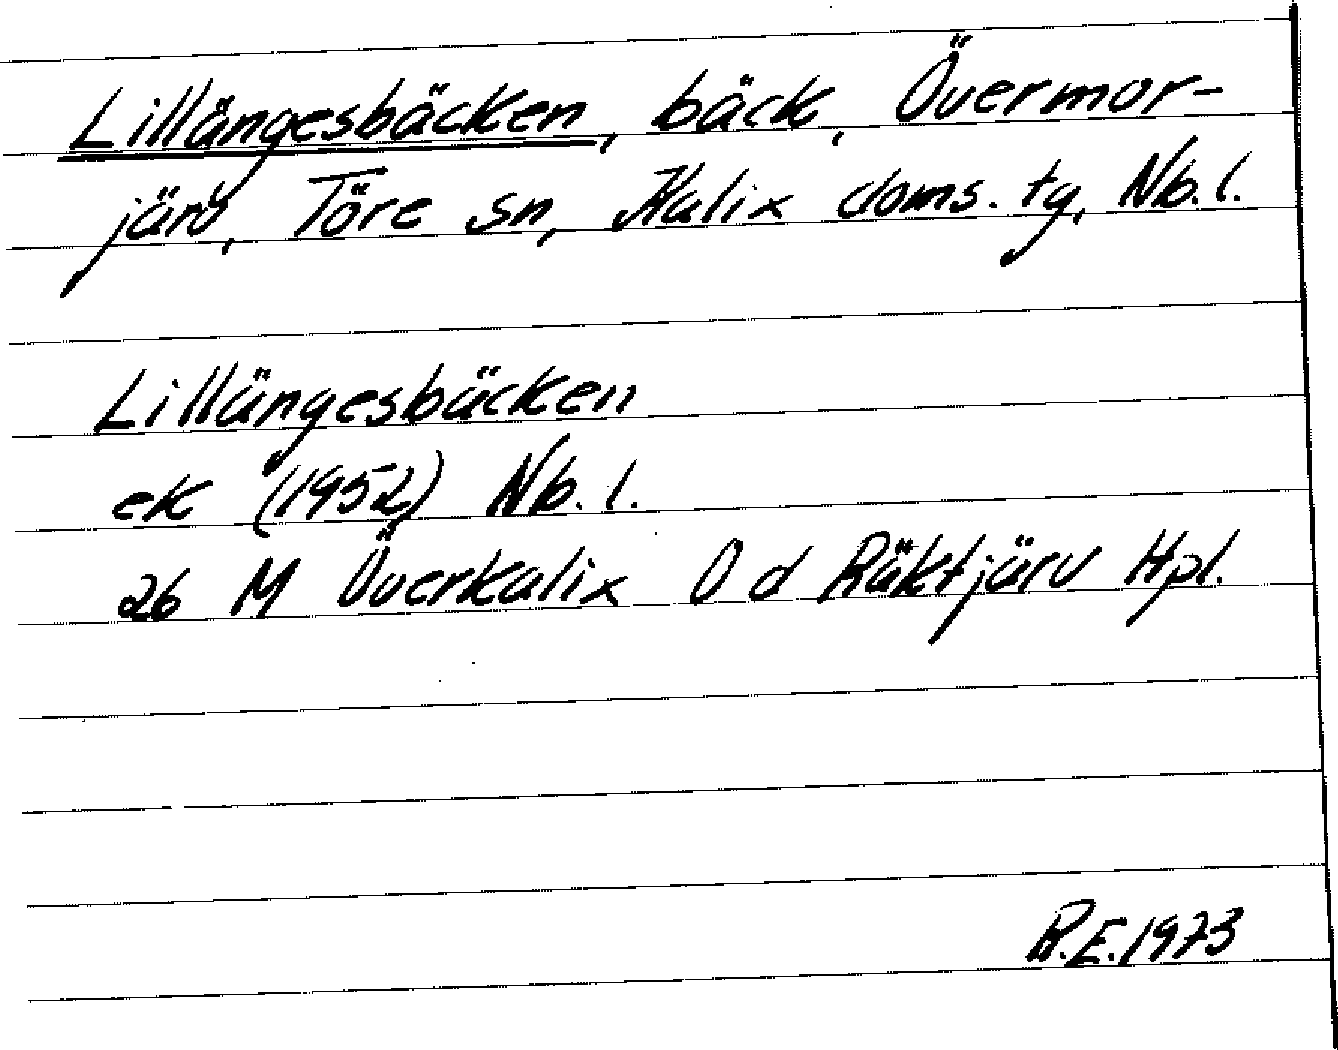 Lillängesbäcken, bäck, Övermor-
järv, Töre sn, Kalix doms. tg, Nb. l.
Lillängesbäcken
ek (1952) Nb. l.
26 M Överkalix O d Räktjärv Hpl.
R.E. 1973